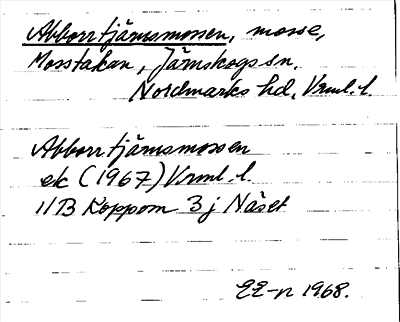 Abborrtjärnsmossen, mosse,
Mosstakan, Järnskogs sn.
Nordmarks hd, Vrml. l.
Abborrtjärnsmossen
ek (1967) Vrml. l.
11B Koppom 3 j Näset
EE-n 1968.